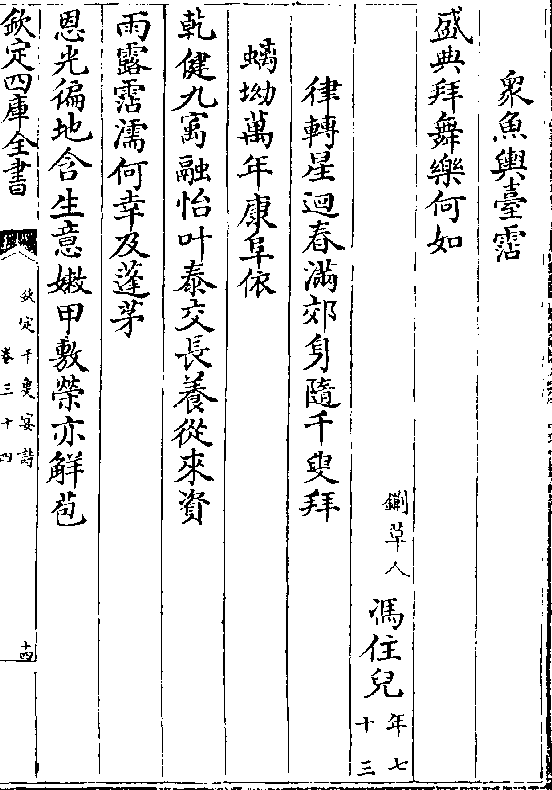 衆魚輿臺霑
盛典拜舞樂何如
鍘草人 馮住兒 年七十三
律轉星迴春滿郊身隨千叟拜
螭坳萬年康阜依
乾健九㝢融怡叶泰交長養從來資
雨露霑濡何幸及蓬茅
恩光徧地含生意嫩甲敷榮亦解苞
欽定四庫全書
欽定千叟宴詩
卷三十四
十四